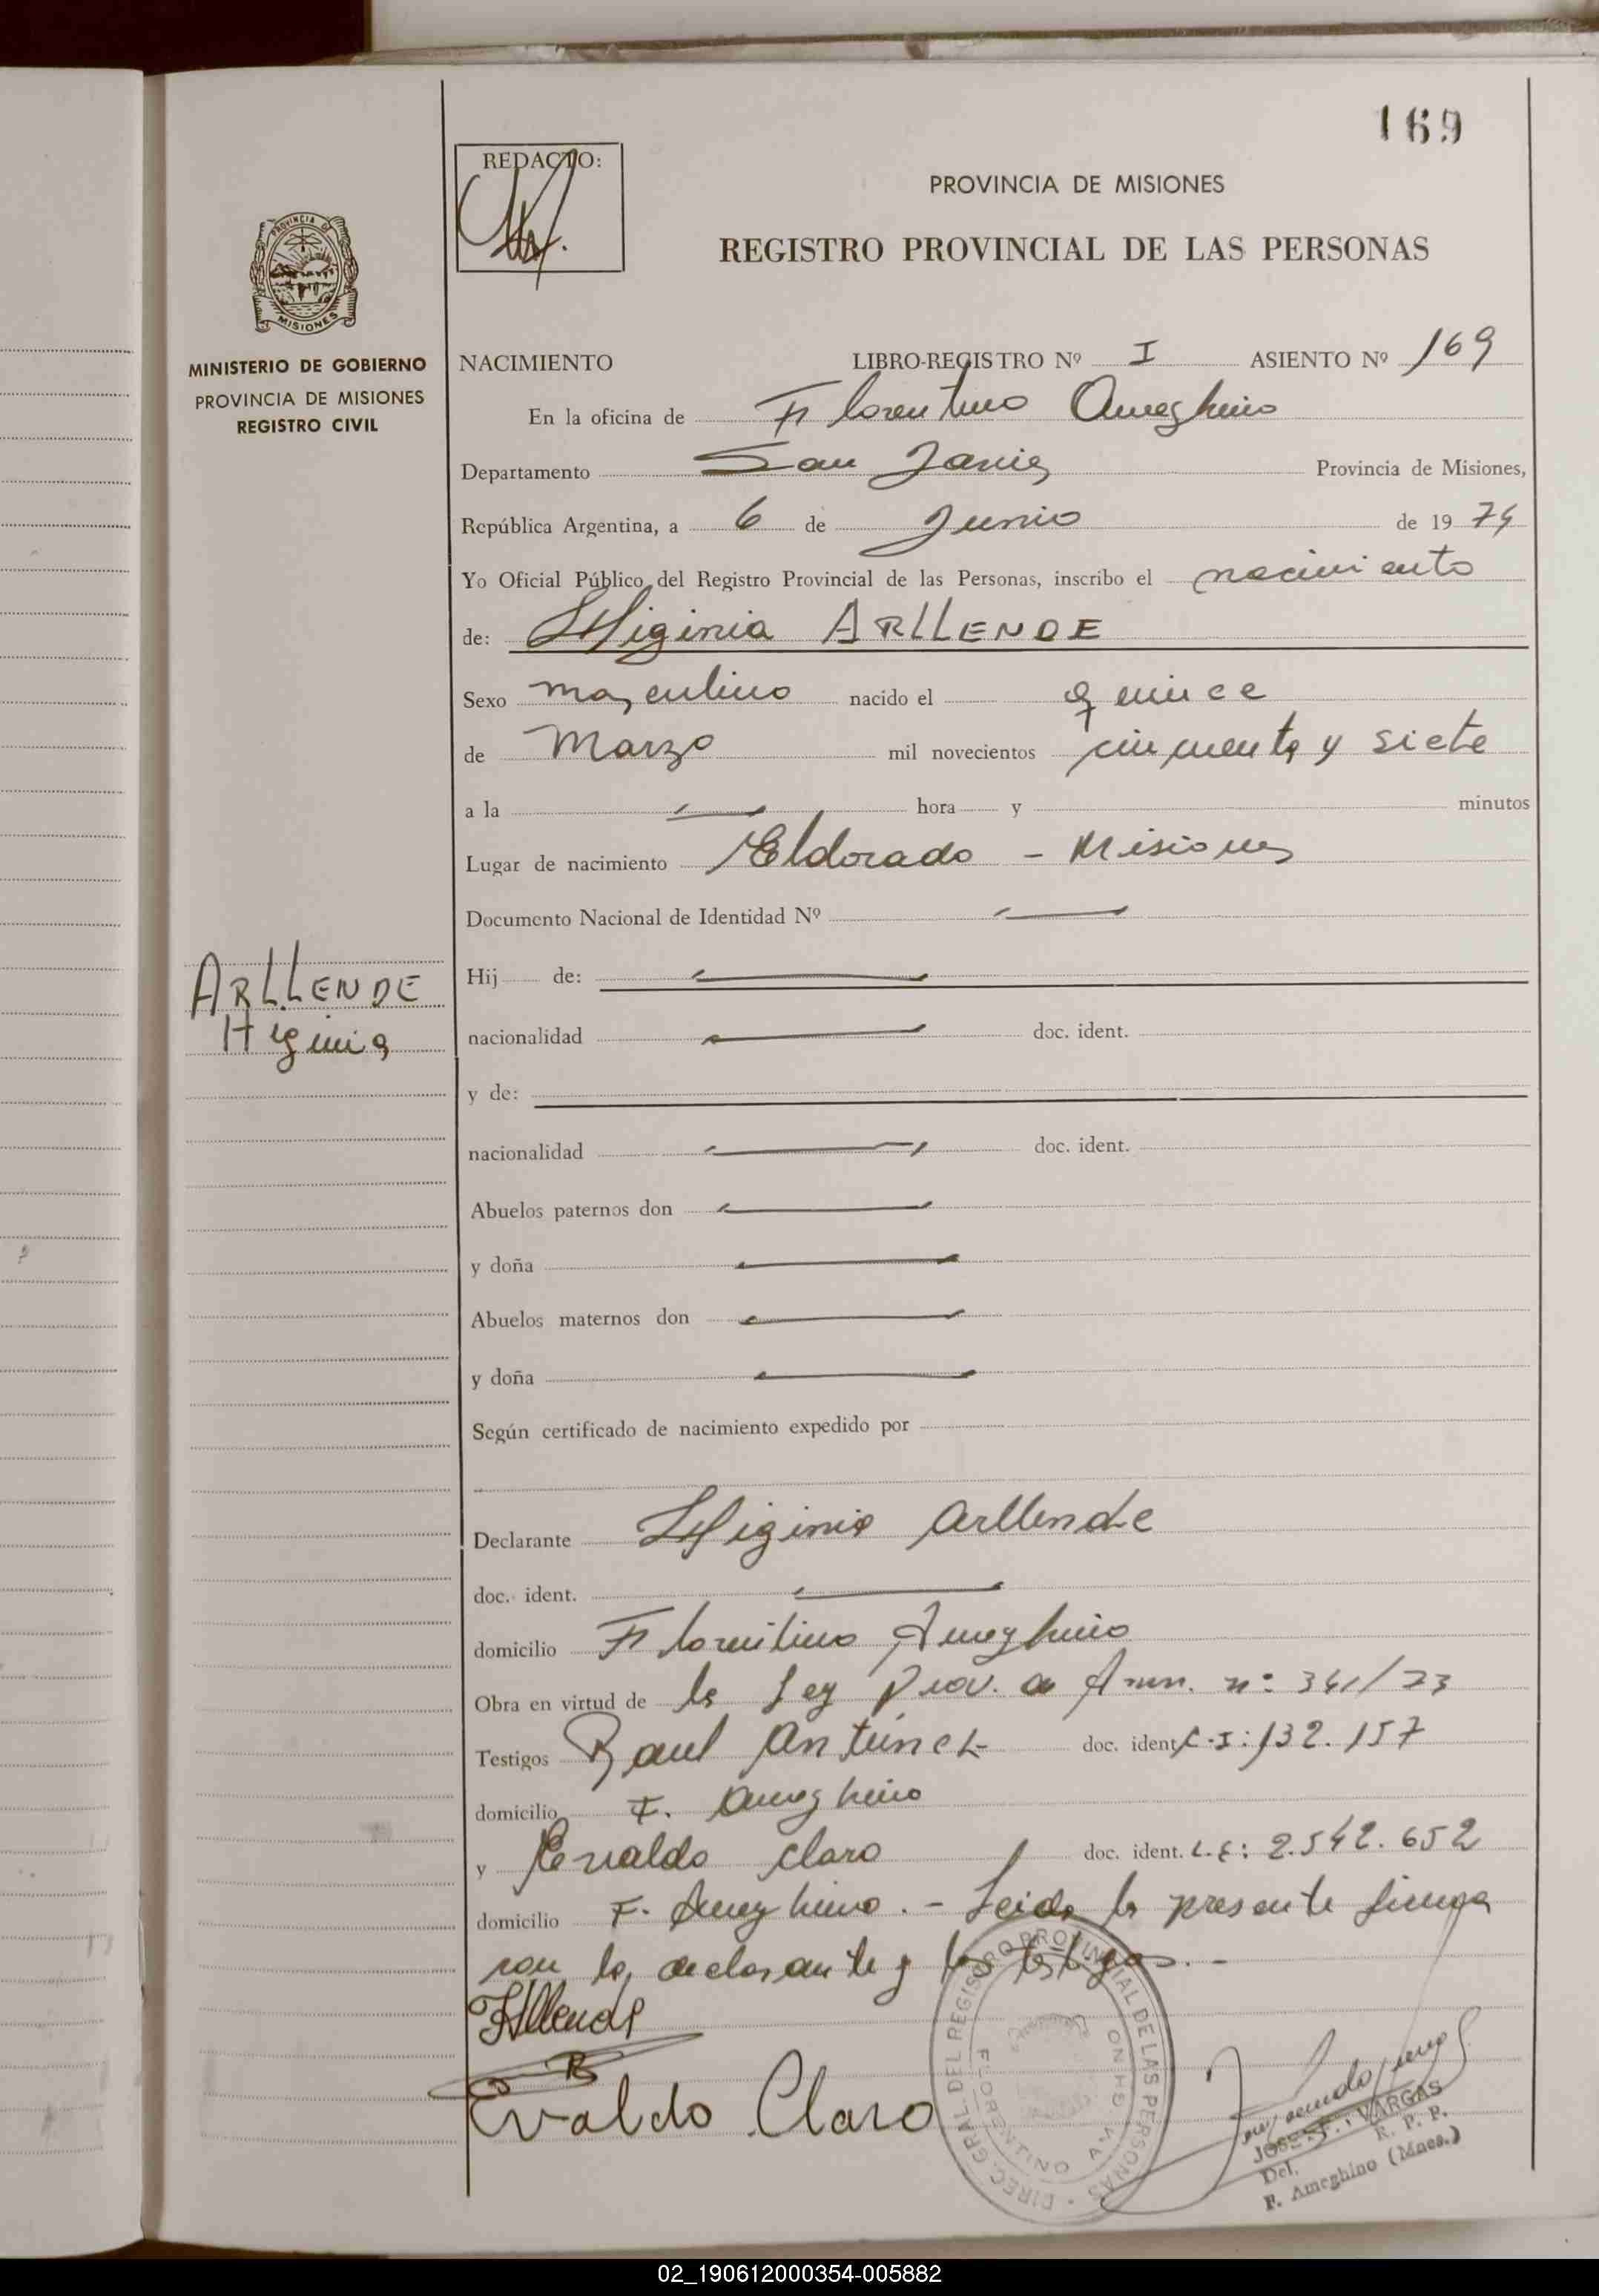 169
REDACTO:
PROVINCIA DE MISIONES
REGISTRO PROVINCIAL DE LAS PERSONAS
PROVINCIA DE
MISIONES
MINISTERIO DE GOBIERNO
PROVINCIA DE MISIONES
REGISTRO CIVIL
NACIMIENTO LIBRO-REGISTRO Nº I ASIENTO Nº 169
En la oficina de Florentino Ameghino
Departamento San Javier Provincia de Misiones,
República Argentina, a 6 de Junio de 1974
Yo Oficial Público del Registro Provincial de las Personas, inscribo el nacimiento
de: Higinia ARLLENDE
Sexo masculino nacido el quince
de Marzo mil novecientos cincuenta y siete
a la hora y minutos
Lugar de nacimiento Eldorado - Misiones
Documento Nacional de Identidad Nº
ARLLENDE
Higinia
Hij de:
nacionalidad doc. ident.
y de:
nacionalidad doc. ident.
Abuelos paternos don
y doña
Abuelos maternos don
y doña
Según certificado de nacimiento expedido por
Declarante Higinio Arllende
doc. ident.
domicilio Florentino Ameghino
Obra en virtud de la Ley Prov. de Amn. nº 341/73
Testigos Raul Antunez doc. ident. C.I: 132.157
domicilio F. Ameghino
y Evaldo Claro doc. ident. L.E: 2.542.652
domicilio F. Ameghino. - Leida la presente firma
con la declarante y los testigos. -
Allende
Evaldo Claro
DIREC. GRAL. DEL REGISTRO PROVINCIAL DE LAS PERSONAS
FLORENTINO AMEGHINO
JOSE F. VARGAS
Del. R. P. P.
F. Ameghino (Mnes.)
02_190612000354-005882